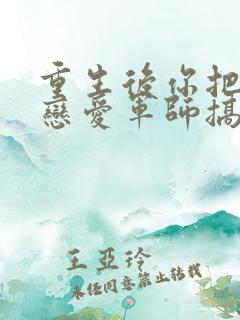 重生後你把
戀愛軍師搞
王亞玲
未經同意禁止轉載